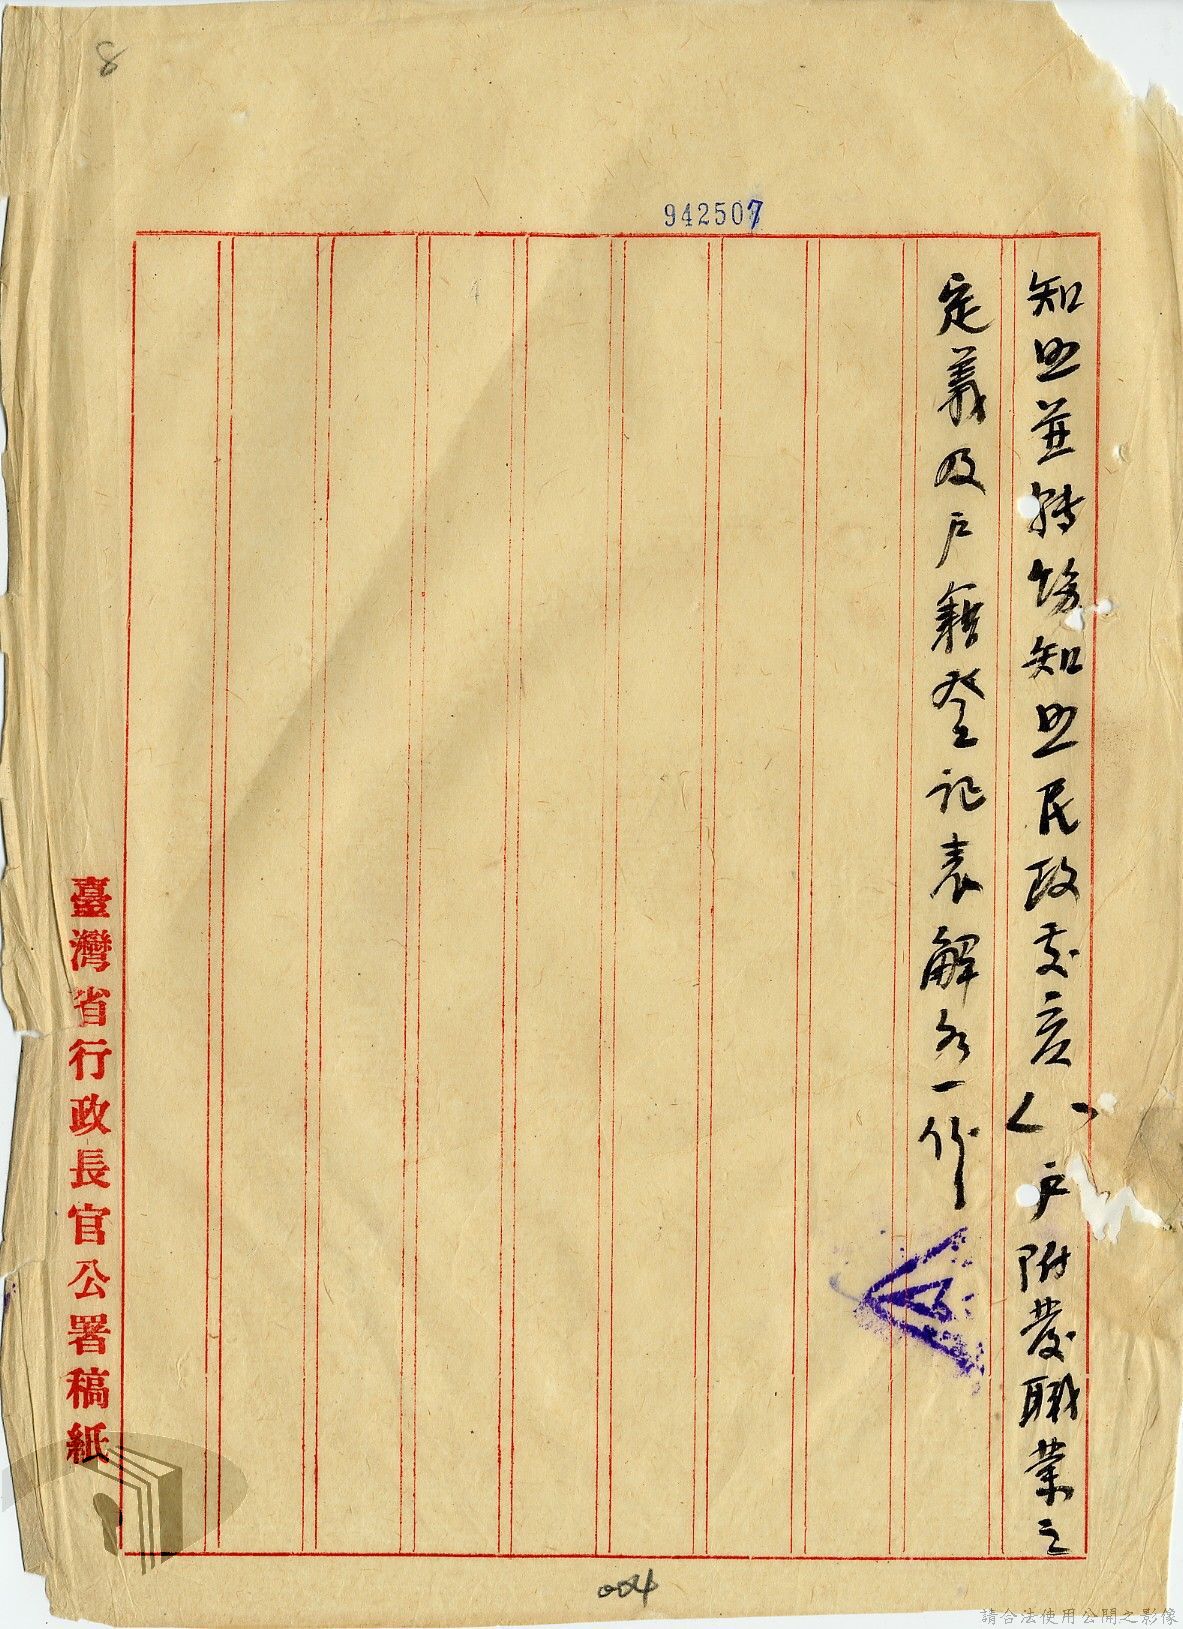 8
942507
知照並轉飭知照民政處啓(一)戶附發職業之
定義及戶籍登記表解各一份
臺灣省行政長官公署稿紙
004
請合法使用公開之影像